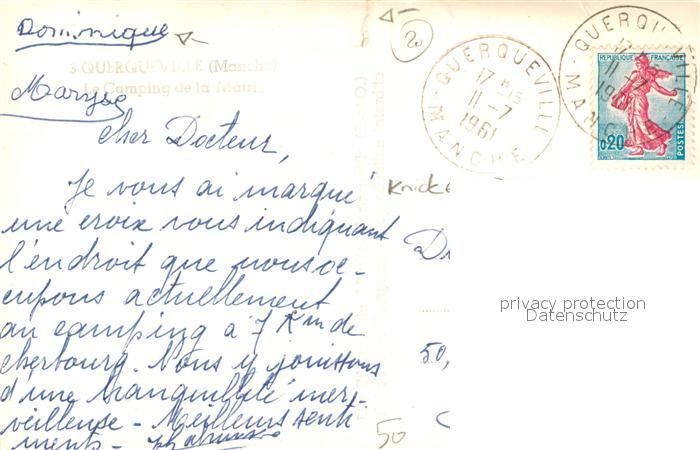 Dominique
3-QUERQUEVILLE (Manche)
Le Camping de la Mairie
Maryse
Cher Docteur,
Je vous ai marqué
une croix vous indiquant
l'endroit que nous oc-
cupons actuellement
au camping à 7 Km de
Cherbourg. Nous y jouissons
d'une tranquillité mer-
veilleuse - Meilleurs senti
ments -
20
QUERQUEVILLE
17 H 15
11-7
1961
MANCHE
QUERQUEVILLE
17 H
11-7
1961
MANCHE
REPUBLIQUE FRANÇAISE
0,20
POSTES
Knick
D
50,
50
privacy protection
Datenschutz